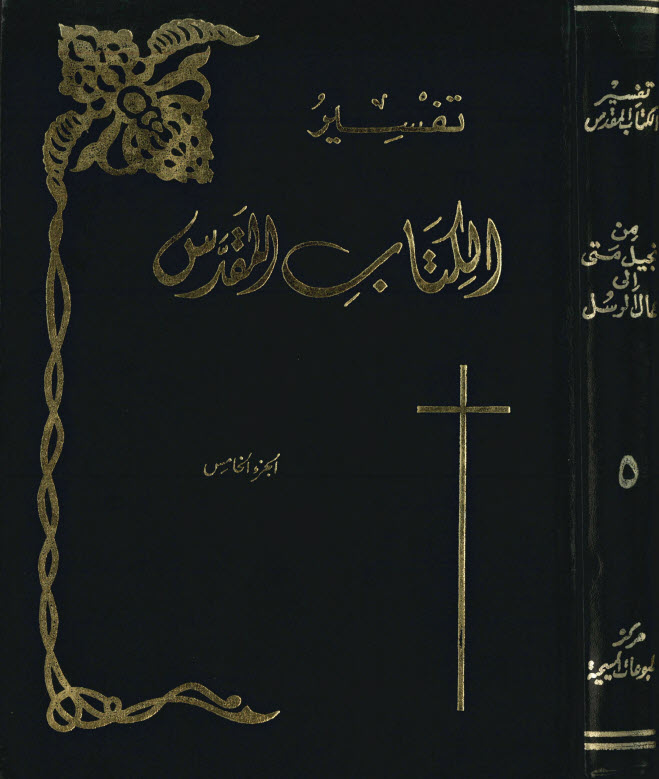 تَفْسِيرُ
الكِتَابِ المقَدَّس
الجزء الخامس
تفسير
الكتاب المقدس
مِن
نجيل مَتى
إلى
مال الرسُل
٥
مركز
لمطبوعات المسيحية